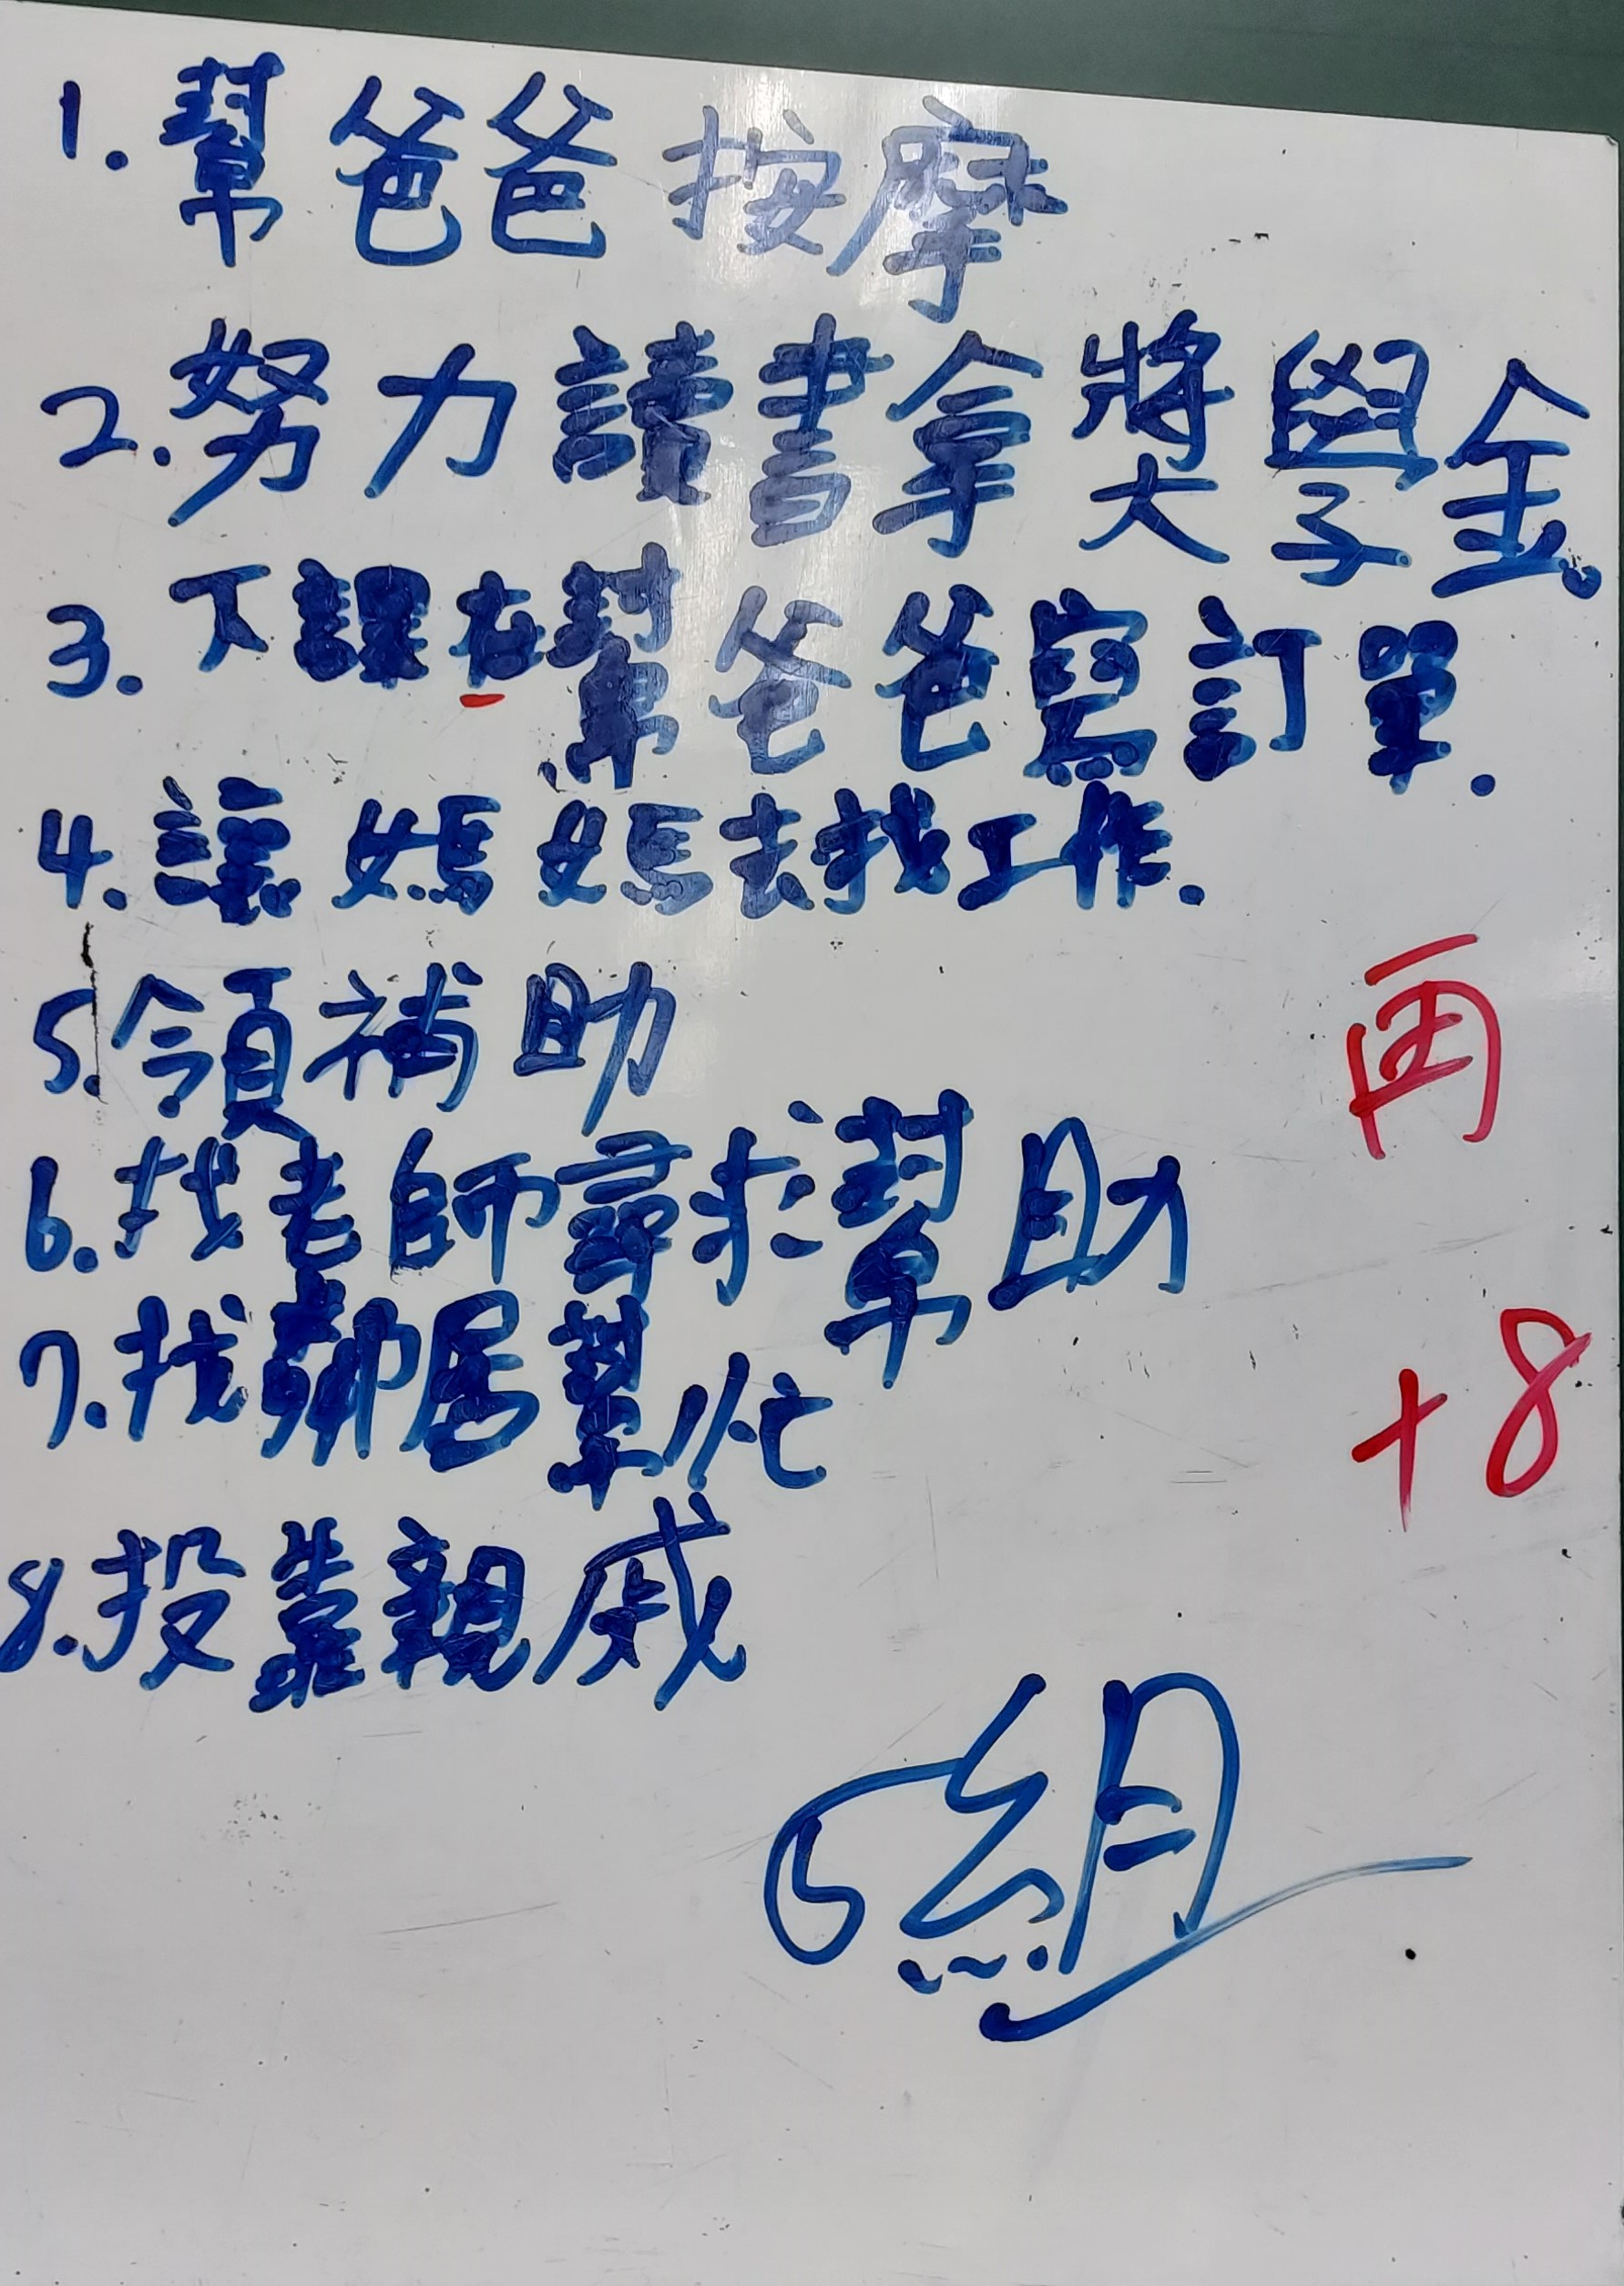 1.幫爸爸按摩
2.努力讀書拿獎學金。
3.下課在幫爸爸寫訂單.
4.讓媽媽去找工作.
5.領補助
再
6.找老師尋求幫助
7.找鄰居幫忙
+8
8.投靠親戚
6組